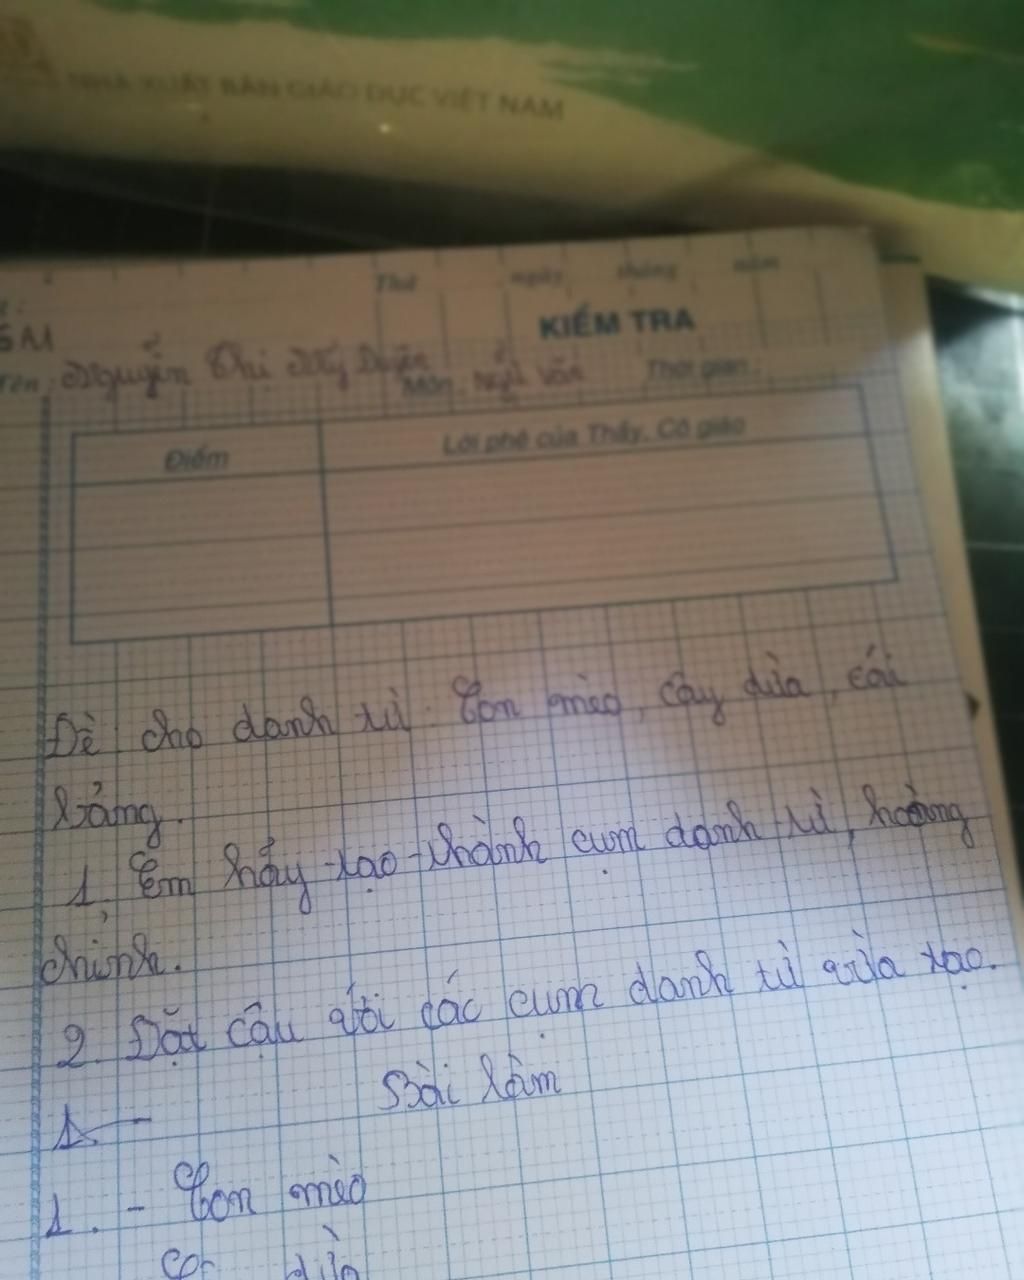 NHÀ XUẤT BẢN GIÁO DỤC VIỆT NAM
Thứ ngày tháng năm
KIỂM TRA
Tên: Nguyễn Thị Mỹ Duyên Môn: Ngữ Văn Thời gian:
Điểm Lời phê của Thầy, Cô giáo
Đề cho danh từ: Con mèo, cây dừa, cái
bảng.
1. Em hãy tạo thành cụm danh từ hoàng
chỉnh.
2. Đặt câu với các cụm danh từ vừa tạo.
Bài làm
1. - Con mèo
dừa